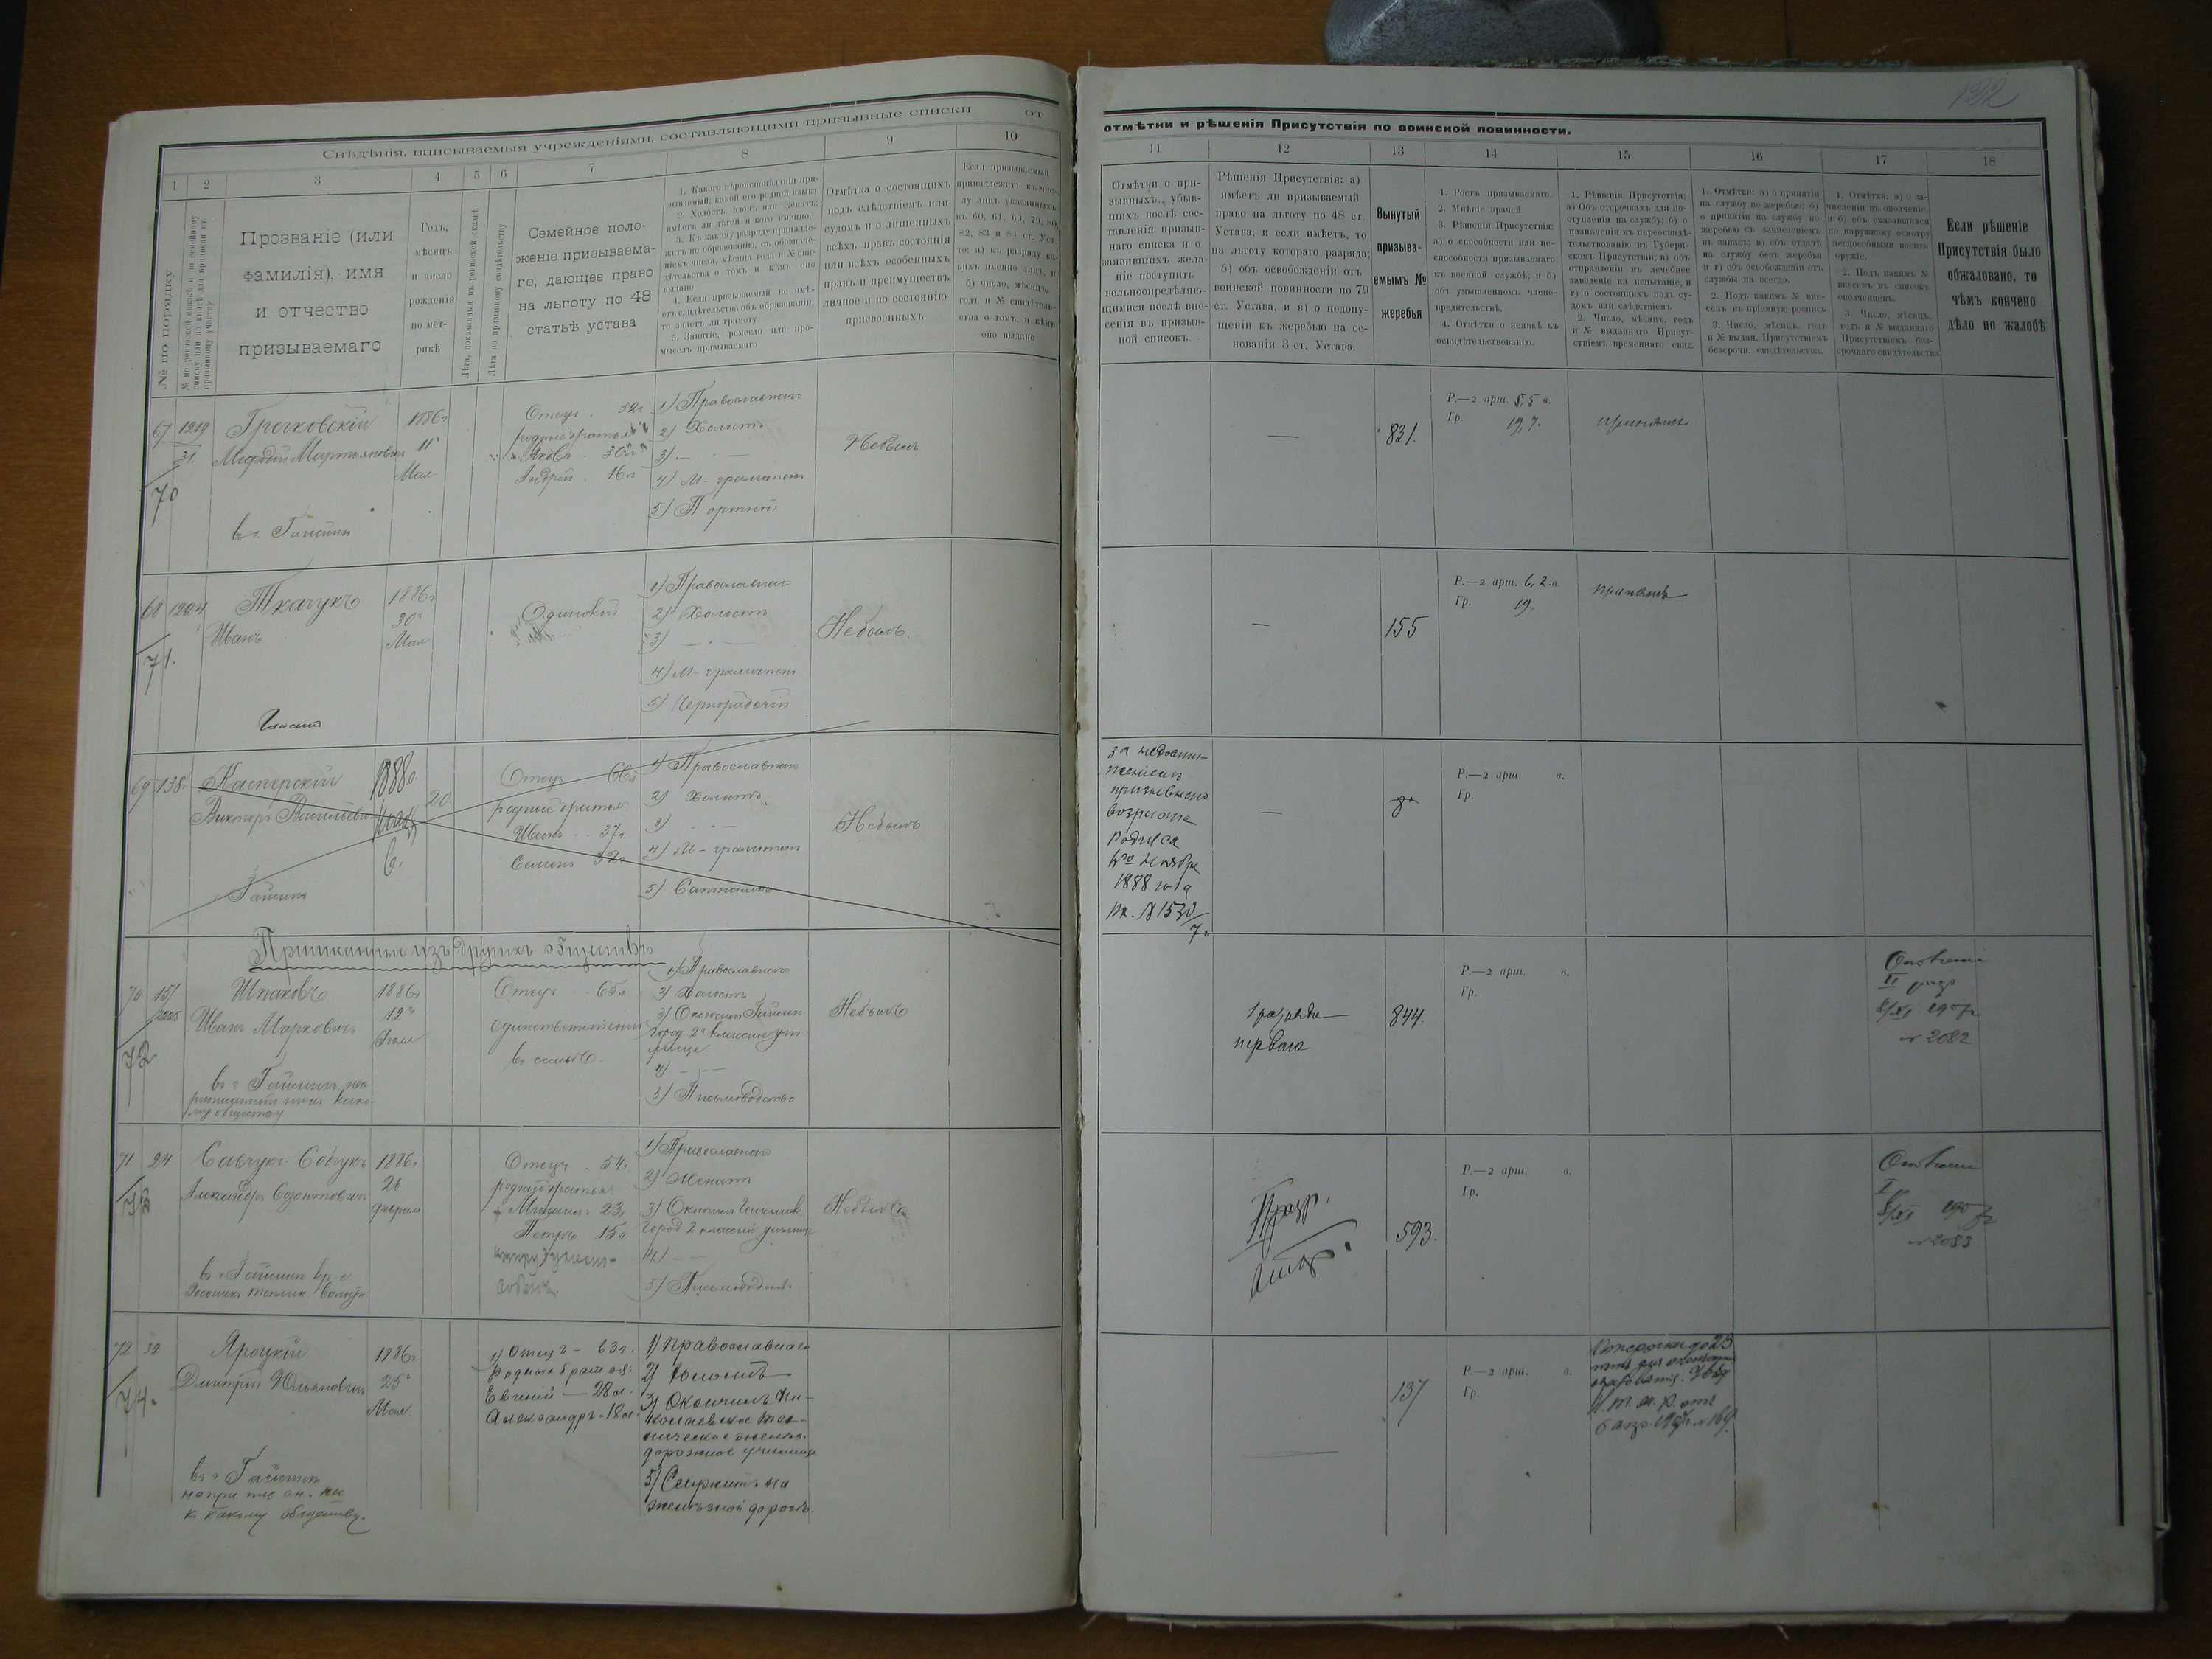 122
Свѣдѣнія, вписываемыя учрежденіями, составляющими призывные списки
от
отмѣтки и рѣшенія Присутствія по воинской повинности.
1 2 3 4 5 6 7 8 9 10
11 12 13 14 15 16 17 18
№ по порядку
№ по ревизской сказкѣ и по семейному
списку или по книгѣ для приписки къ
призывному участку
Прозваніе (или
фамилія), имя
и отчество
призываемаго
Годъ,
мѣсяцъ
и число
рожденія
по мет-
рикѣ
Лѣта, показанныя въ ревизской сказкѣ
Лѣта по призывному свидѣтельству
Семейное поло-
женіе призываема-
го, дающее право
на льготу по 48
статьѣ устава
1. Какого вѣроисповѣданія при-
зываемый; какой его родной языкъ
2. Холостъ, вдовъ или женатъ;
имѣетъ ли дѣтей и кого именно.
3. Къ какому разряду принадле-
житъ по образованію, съ обозначе-
ніемъ числа, мѣсяца года и № сви-
дѣтельства о томъ и кѣмъ оно
выдано
4. Если призываемый не имѣ-
етъ свидѣтельства объ образованіи,
то знаетъ ли грамоту
5. Занятіе, ремесло или про-
мыселъ призываемаго
Отмѣтка о состоящихъ
подъ слѣдствіемъ или
судомъ и о лишенныхъ
всѣхъ правъ состоянія
или всѣхъ особенныхъ
правъ и преимуществъ
личное и по состоянію
присвоенныхъ
Если призываемый
принадлежитъ къ чис-
лу лицъ указанныхъ
въ 60, 61, 63, 79, 80,
82, 83 и 84 ст. Уст.
то: а) къ разряду ка-
кихъ именно лицъ, и
б) число, мѣсяцъ,
годъ и № свидѣтель-
ства о томъ, и кѣмъ
оно выдано
Отмѣтки о при-
зывныхъ, убыв-
шихъ послѣ сос-
тавленія призыв-
наго списка и о
заявившихъ жела-
ніе поступить
вольноопредѣляю-
щимися послѣ вне-
сенія въ призыв-
ной списокъ.
Рѣшенія Присутствія: а)
имѣетъ ли призываемый
право на льготу по 48 ст.
Устава, и если имѣетъ, то
на льготу котораго разряда;
б) объ освобожденіи отъ
воинской повинности по 79
ст. Устава, и в) о недопу-
щеніи къ жеребью на ос-
нованіи 3 ст. Устава.
Вынутый
призыва-
емымъ №
жеребья
1. Ростъ призываемаго.
2. Мнѣніе врачей
3. Рѣшенія Присутствія:
а) о способности или не-
способности призываемаго
къ военной службѣ; и б)
объ умышленномъ члено-
вредительствѣ.
4. Отмѣтки о неявкѣ къ
освидѣтельствованію.
1. Рѣшенія Присутствія:
а) Объ отсрочкахъ для по-
ступленія на службу; б) о
назначеніи къ переосвидѣ-
тельствованію въ Губерн-
скомъ Присутствіи; в) объ
отправленіи въ лечебное
заведеніе на испытаніе, и
г) о состоящихъ подъ су-
домъ или слѣдствіемъ
2. Число, мѣсяцъ, годъ
и № выданнаго Присут-
ствіемъ временнаго свид.
1. Отмѣтки: а) о принятіи
на службу по жеребью; б)
о принятіи на службу по
жеребью съ зачисленіемъ
въ запасъ; в) объ отдачѣ
на службу безъ жеребья
и г) объ освобожденіи отъ
службы на всегда.
2. Подъ какимъ № вне-
сенъ въ пріемную роспись
3. Число, мѣсяцъ, годъ
и № выдан. Присутствіемъ
безсрочн. свидѣтельства.
1. Отмѣтки: а) о за-
численіи въ ополченіе,
и б) объ оказавшихся
по наружному осмотру
неспособными носить
оружіе.
2. Подъ какимъ №
внесенъ въ списокъ
ополченцевъ.
3. Число, мѣсяцъ,
годъ и № выданнаго
Присутствіемъ без-
срочнаго свидѣтельства
Если рѣшеніе
Присутствія было
обжаловано, то
чѣмъ кончено
дѣло по жалобѣ
67 1219
31.
70
Гречковскій
Мефодій Мартыновичъ
въ г. Гайсинѣ
1886г
11го
Мая
Отецъ 52г
родные братья
Яковъ 30л
Андрей 16л
1) Православнаго
2) Холостъ
3) —
4) М-грамотенъ
5) Портной
Небылъ
—
831.
Р.—2 арш. 5,5 в.
Гр. 19,7.
принятъ
68 1204
71.
Ткачукъ
Иванъ
Гайсинъ
1886г
30го
Мая
Одинокій
1) Православнаго
2) Холостъ
3) —
4) М-грамотенъ
5) Чернорабочій
Небылъ.
—
155
Р.—2 арш. 6,2 в.
Гр. 19.
принятъ
69 138.
Касперскій
Викторъ Васильевичъ
Гайсинъ
1888г
20
Отецъ 66л
родные братья
Иванъ 37л
Семенъ 32л
1) Православнаго
2) Холостъ.
3) —
4) М-грамотенъ
5) Сапожникъ
Небылъ
за недости-
женіемъ
призывнаго
возраста
родился
6го ноября
1888 года
—
Р.—2 арш. в.
Гр.
Приписанные изъ другихъ обществъ
70 15/
72
Шпаковъ
Иванъ Марковичъ
въ г. Гайсинѣ, не
1886г
12го
Отецъ 65л
единственный сынъ
въ семьѣ.
1) Православнаго
2) Холостъ
3) Окончилъ Гайсин.
город. 2х классное учи-
лище
4) —
5) Письмоводство
Небылъ
1 разряда
перваго
844.
Р.—2 арш. в.
Гр.
Ополченіе
II разр
8/XI 1907г
№ 2082
71 24
73
Савчукъ-Собчукъ
Александръ Созонтовичъ
1886г
26
Февраля
Отецъ 54г.
родные братья:
Михаилъ 23г
Петръ 15л
1) Православнаго
2) Женатъ
3) Окончилъ
город. 2 классное училище
4) —
5) Письмоводство
Небылъ
593.
Р.—2 арш. в.
Гр.
Ополченіе
I
8/XI 1907г
№ 2083.
72 32
74.
Яроцкій
Дмитрій Юліановичъ
въ г. Гайсинѣ
неприпис. ни
къ какому обществу.
1886г
25го
Мая
1) Отецъ — 63г.
родные братья:
Евгеній — 28л.
Александръ - 18л
1) Православнаго
2) Холостъ
3) Окончилъ Ни-
колаевское тех-
ническое желѣзно-
дорожное училище
5) Служитъ на
желѣзной дорогѣ.
137
Р.—2 арш. в.
Гр.
Отсрочки до 23